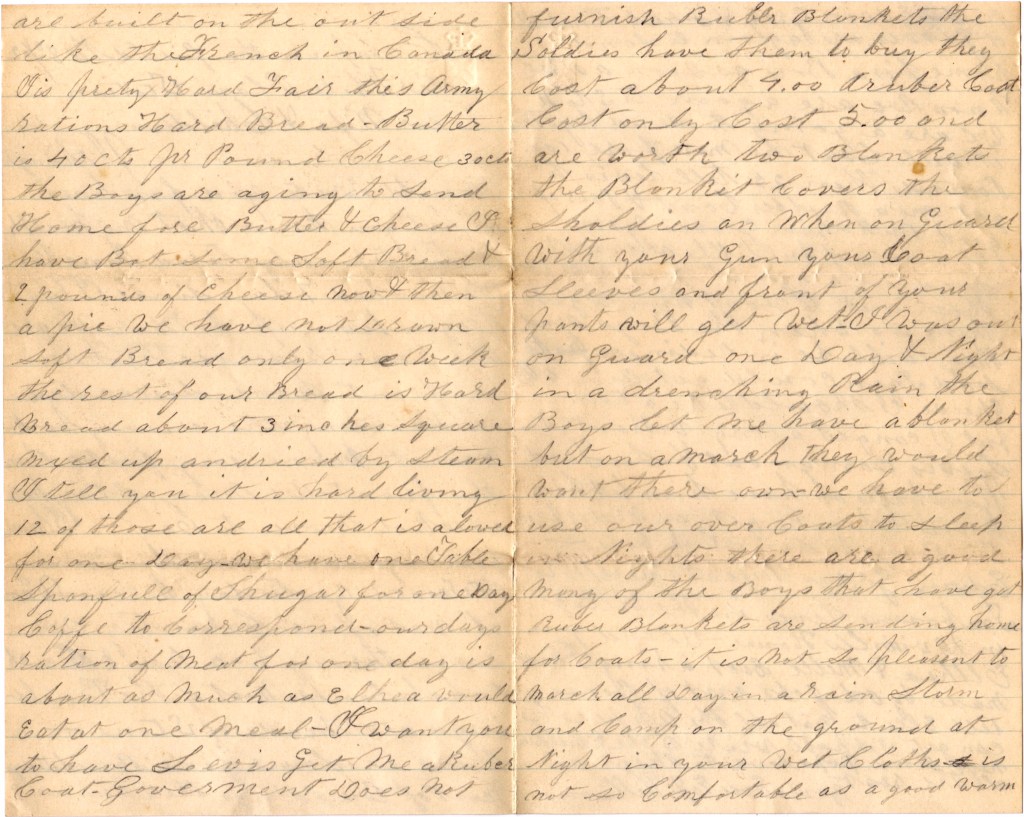 are built on the out side
like the French in Canada
I is prety Hard Fair this Army
rations Hard Bread - Butter
is 40 cts pr Pound Cheese 30 cts
the Boys are aging to Send
Home fore Butter & Cheese I
have Bot some Soft Bread &
2 pounds of Cheese now & then
a pie we have not Drawn
Soft Bread only one Week
the rest of our Bread is Hard
Bread about 3 inches Square
mxed up andried by Steam
I tell you it is hard living
12 of those are all that is aloved
for one Day - we have one Table
Sponfull of Shugar for one Day
Coffe to Correspond - our days
ration of Meat for one day is
about as Much as Elhea would
Eat at one Meal - I want you
to have Lewis Get Me a Ruber
Coat - Goverment Does Not
furnish Ruber Blankets the
Soldies have them to buy they
Cost about 4.00 a ruber Coat
Cost only Cost 5.00 and
are worth two Blankets
the Blankit Covers the
Sholdies an When on Guard
With your Gun your Coat
Sleeves and front of your
pants will get Wet - I was our
on Guard one Day & Night
in a drenching Rain the
Boys let me have a blanket
but on a march they would
want there own - we have to
use our over Coats to Sleep
in Nights there are a good
Many of the Boys that have got
Ruber Blankets are Sending home
for Coats - it is not so pleasant to
March all Day in a rain Storm
and Camp on the ground at
Night in your Wet Cloths - is
not so Comfortable as a good warm